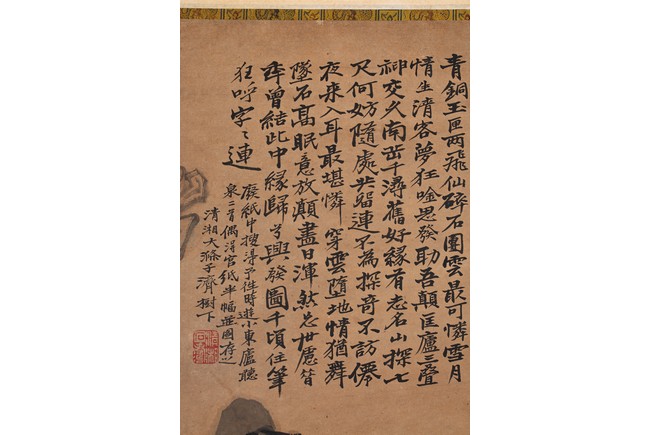 青銅玉匣兩飛仙碎石團雲最可憐雪月
情生清客夢狂吟思發助吾顛匡廬三疊
神交久南岳千潯舊好緣有志名山探七
尺何妨隨處共留連不為探奇不訪僊
夜來入耳最堪憐穿雲墮地情猶舞
墜石高眠意放顛盡日渾然忘世慮昔
年曾結此中緣歸兮興發圖千頃住筆
狂呼字〻連
廢紙中搜得予往時遊小東廬聽
泉二首偶得宮紙半幅並圖存之
清湘大滌子濟樹下